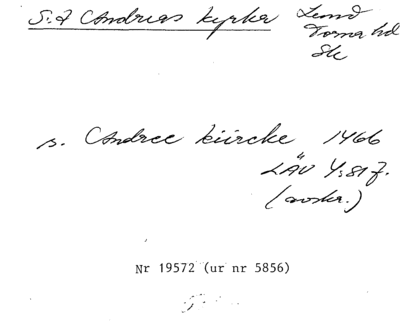 S:t Andreas kyrka Lund
Torna hd
Sk
s. Andree kiircke 1466
LÄU Y:81 f.
(avskr.)
Nr 19572 (ur nr 5856)